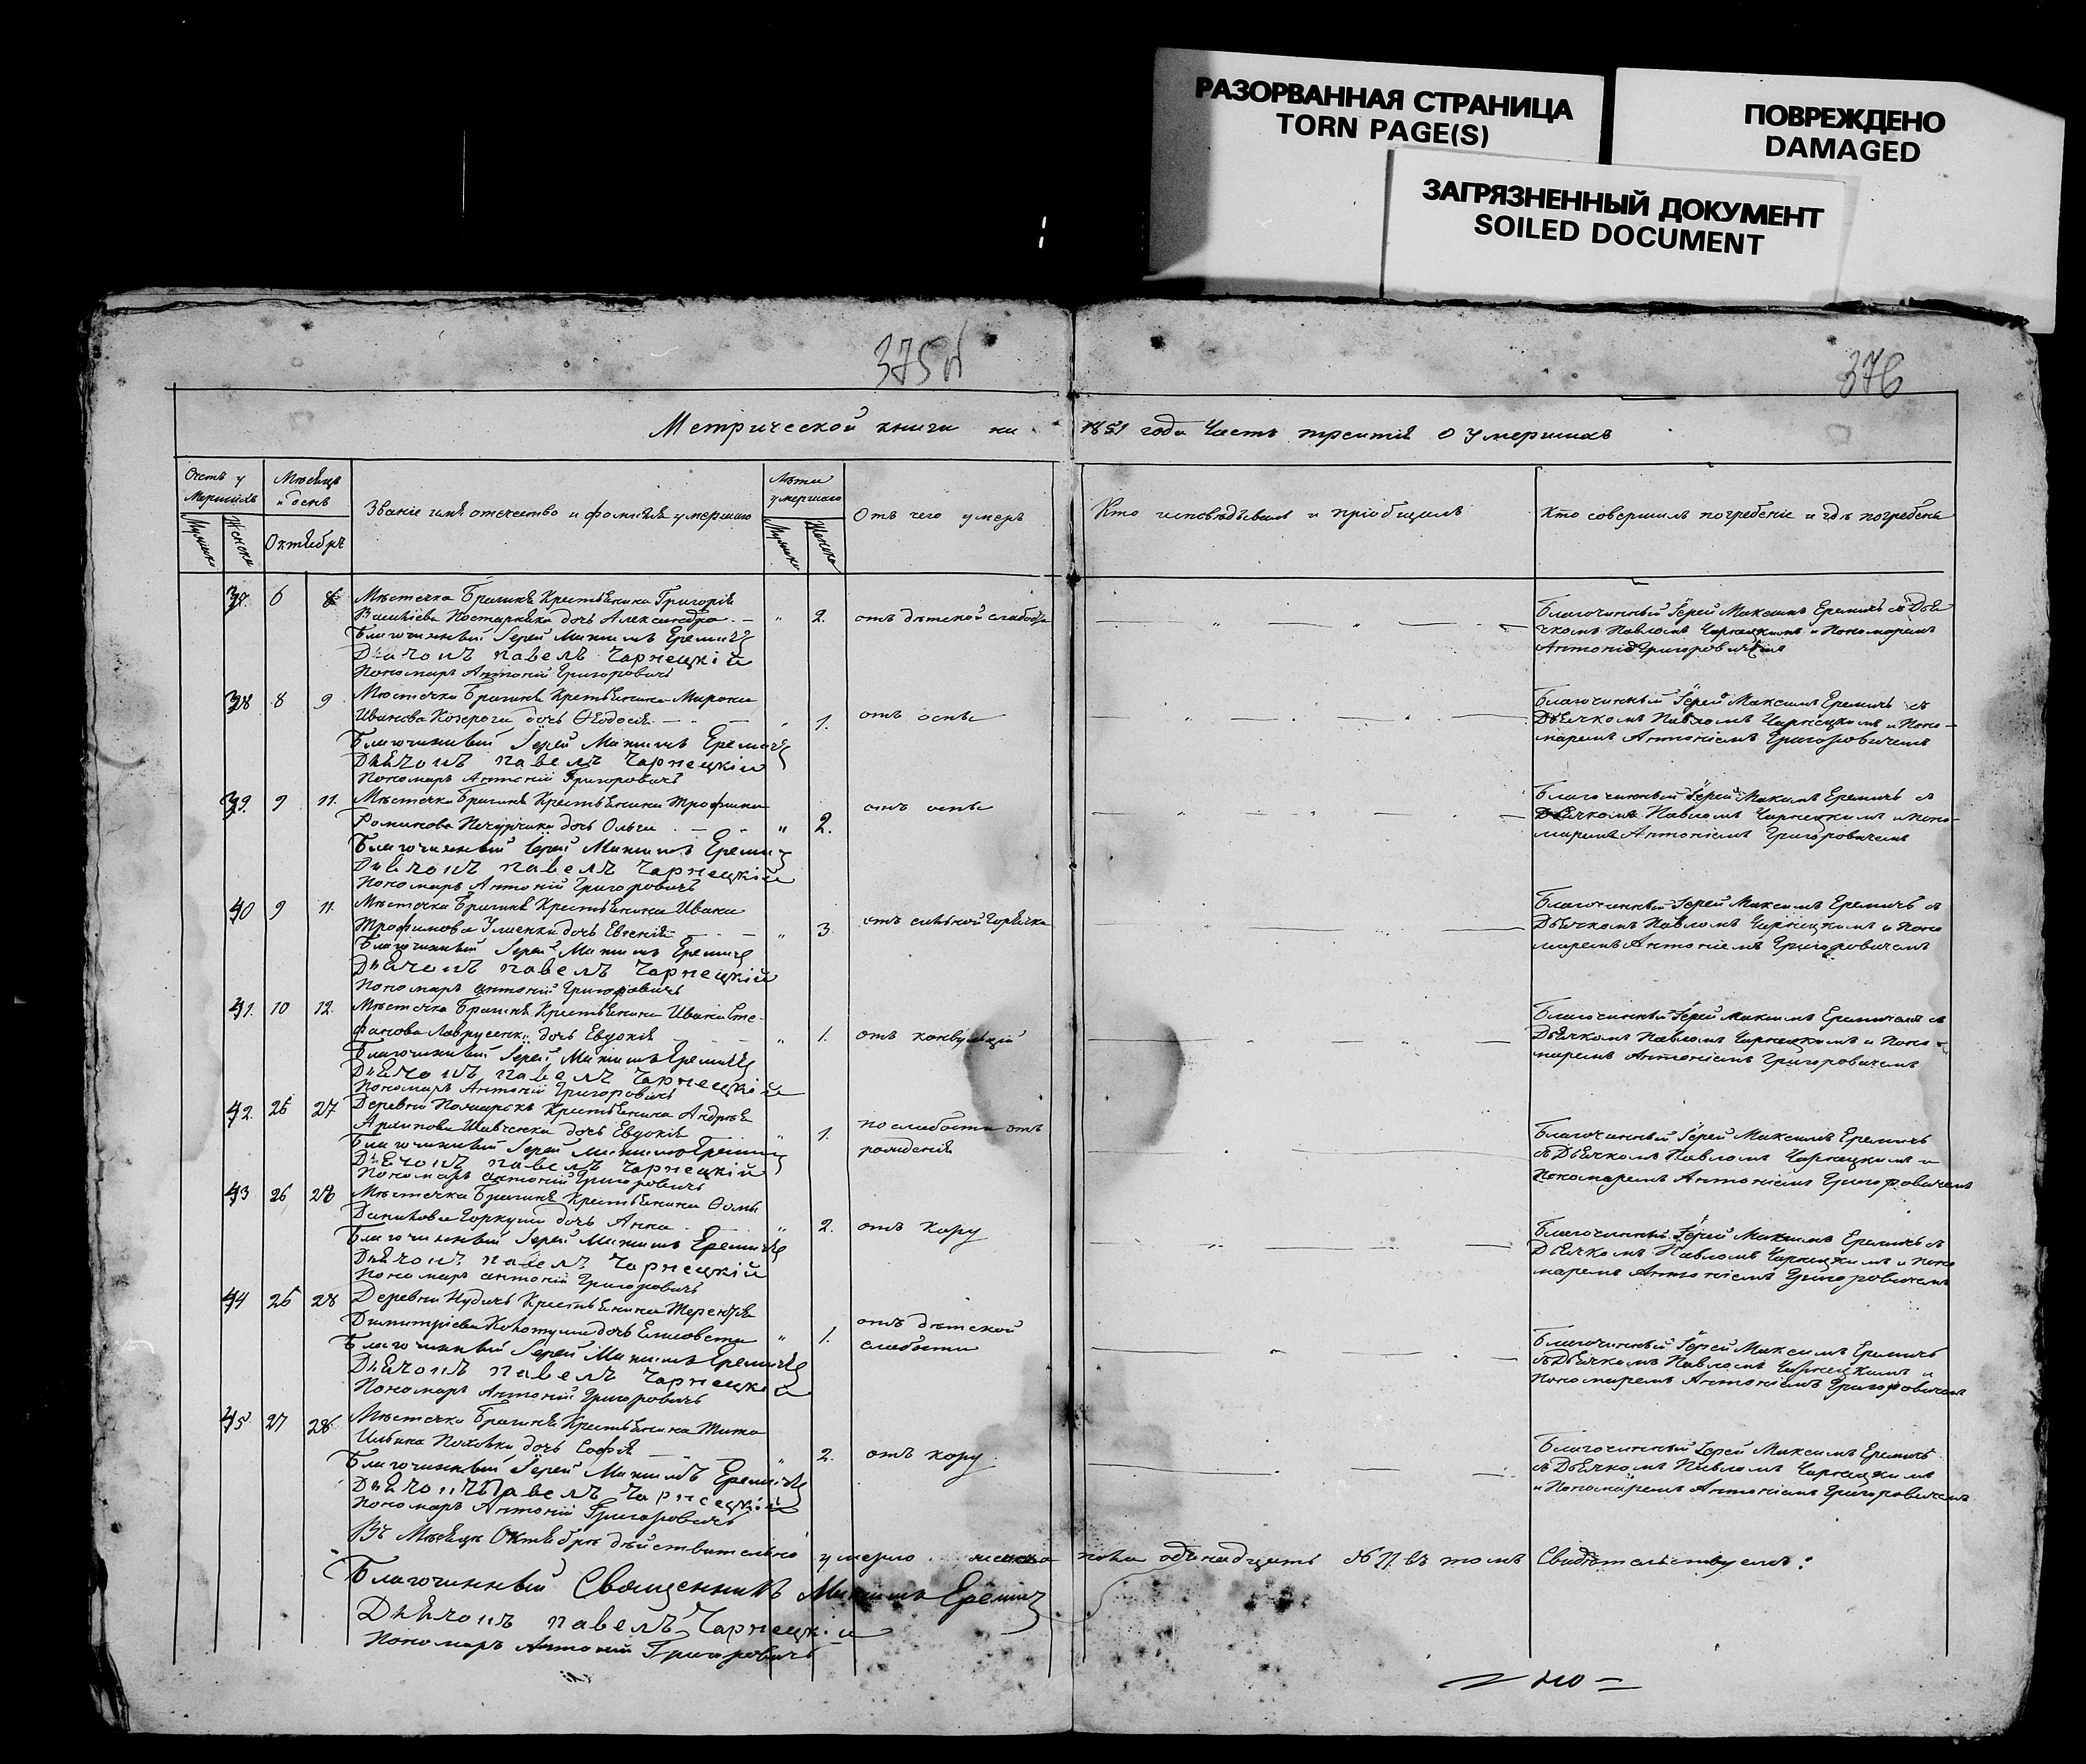 РАЗОРВАННАЯ СТРАНИЦА
TORN PAGE(S)
ПОВРЕЖДЕНО
DAMAGED
ЗАГРЯЗНЕННЫЙ ДОКУМЕНТ
SOILED DOCUMENT
375
376
Метрической книги на 1851 года Часть третія о умершихъ
Мѣсяцъ и день
Октябрь
Мужеска
Женска
Званіе имя отечество и фамилія умершаго
Лѣта умершаго
Мужеска
Женска
Отъ чего умеръ
Кто исповѣдывалъ и пріобщалъ
Кто совершилъ погребеніе и гдѣ погребены
6
Мѣстечка Брагиня Крестьянина Григорія
дочь Александра
" 2. отъ дѣтской слабости
Благочинный Іерей Максимъ Еремичъ съ Дья
чкомъ Павломъ Чарнецкимъ и Пономаремъ
Антоніемъ Григоровичемъ
Благочинный Іерей Максимъ Еремичъ
Дьячокъ павелъ Чарнецкій
Пономарь Антоній Григоровичъ
38 8 9 Мѣстечка Брагиня Крестьянина Мирона
Иванова Козероги дочь Ѳеодосія
" 1. отъ оспы
Благочинный Іерей Максимъ Еремичъ съ
Дьячкомъ Павломъ Чарнецкимъ и Поно-
маремъ Антоніемъ Григоровичемъ
Благочинный Іерей Максимъ Еремичъ
Дьячокъ павелъ Чарнецкій
Пономарь Антоній Григоровичъ
39. 9 11. Мѣстечка Брагиня Крестьянина Трофима
Романова дочь Ольга
" 2. отъ оспы
Благочинный Іерей Максимъ Еремичъ съ
Дьячкомъ Павломъ Чарнецкимъ и Поно-
маремъ Антоніемъ Григоровичемъ
Благочинный Іерей Максимъ Еремичъ
Дьячокъ павелъ Чарнецкій
Пономарь Антоній Григоровичъ
40 9 11. Мѣстечка Брагиня Крестьянина Ивана
Трофимова дочь Евгенія
" 3. отъ сильной горячки
Благочинный Іерей Максимъ Еремичъ съ
Дьячкомъ Павломъ Чарнецкимъ и Поно
маремъ Антоніемъ Григоровичемъ
Благочинный Іерей Максимъ Еремичъ
Дьячокъ павелъ Чарнецкій
Пономарь антоній Григоровичъ
41. 10 12. Мѣстечка Брагиня Крестьянина Ивана Сте-
фанова дочь Евдокія
" 1. отъ конвульцій
Благочинный Іерей Максимъ съ
Дьячкомъ Павломъ Чарнецкимъ и Поно-
маремъ Антоніемъ Григоровичемъ
Благочинный Іерей Максимъ Еремичъ
Дьячокъ павелъ Чарнецкій
Пономарь Антоній Григоровичъ
42. 27 Деревни Крестьянина Андрея
Шевченка дочь Евдокія
" 1. по слабости отъ
рожденія
Благочинный Іерей Максимъ Еремичъ
съ Дьячкомъ Павломъ Чарнецкимъ и
Пономаремъ Антоніемъ Григоровичемъ
Благочинный Іерей Максимъ Еремичъ
Дьячокъ павелъ Чарнецкій
Пономарь антоній Григоровичъ
43 26 28 Мѣстечка Брагиня Крестьянина Ѳомы
дочь Анна
" 2. отъ кору
Благочинный Іерей Максимъ Еремичъ съ
Дьячкомъ Павломъ Чарнецкимъ и Поно
маремъ Антоніемъ Григоровичемъ
Благочинный Іерей Максимъ Еремичъ
Дьячокъ павелъ Чарнецкій
Пономарь антоній Григоровичъ
44 28 Деревни Крестьянина Терентія
Димитріева дочь
" 1. отъ дѣтской
слабости
Благочинный Іерей Максимъ Еремичъ
съ Дьячкомъ Павломъ Чарнецкимъ и
Пономаремъ Антоніемъ Григоровичемъ
Благочинный Іерей Максимъ Еремичъ
Дьячокъ павелъ Чарнецкій
Пономарь Антоній Григоровичъ
45 27 28 Мѣстечка Брагиня Крестьянина Тита
дочь Софія
" 2. отъ кору
Благочинный Іерей Максимъ Еремичъ
съ Дьячкомъ Павломъ Чарнецкимъ
и Пономаремъ Антоніемъ Григоровичемъ
Благочинный Іерей Максимъ Еремичъ
Дьячокъ Павелъ Чарнецкій
Пономарь Антоній Григоровичъ
Въ Мѣсяцѣ Октябрѣ дѣйствительно умерло женска пола одинадцать № 11. въ томъ Свидѣтельствуемъ:
Благочинный Священникъ Максимъ Еремичъ
Дьячокъ павелъ Чарнецкій
Пономарь Антоній Григоровичъ